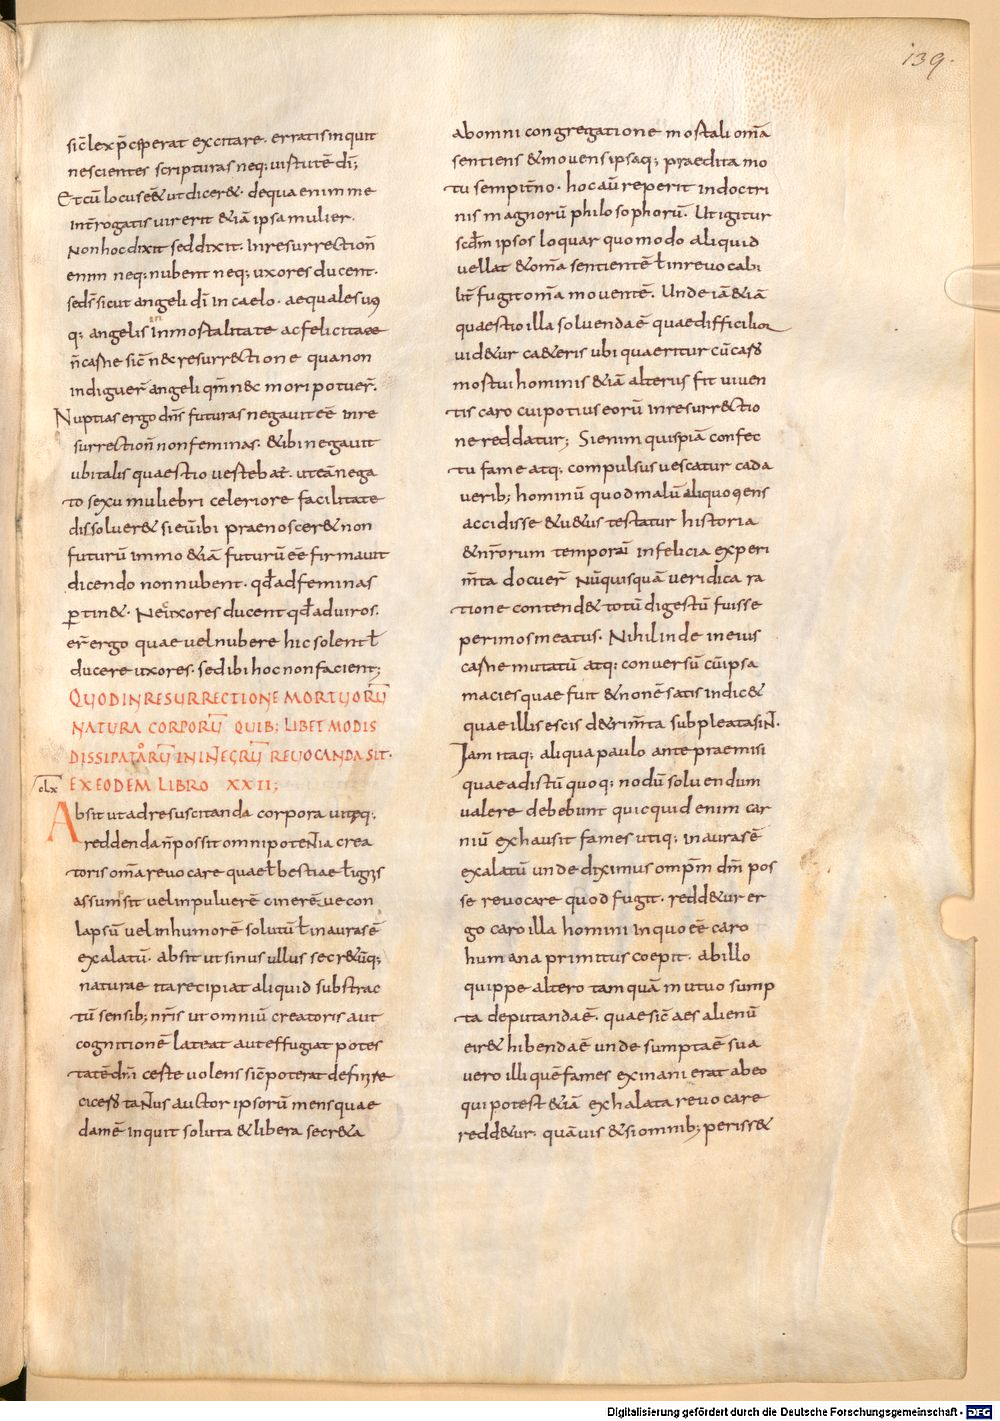 139.
sic̄ lex p̄ceperat excitare. erratis inquit
nescientes scripturas neq; uirtutē dī;
Et cū locus eēt ut diceret. de qua enim me
int̄rogatis uir erit etiā ipsa mulier.
Non hoc dixit sed dixit. In resurrection̄
enim neq; nubent neq; uxores ducent.
sed s̄ sicut angeli dī in caelo. aequales usq
q; angelis in inmortalitate ac felicitate
n̄ carne sic̄ nec resurrectione qua non
indiguer̄ angeli qm̄ nec mori potuer̄.
Nuptias ergo dn̄s futuras negauit eē in re
surrection̄ non feminas. et ibi negauit
ubi talis quaestio uertebat̄. ut eā nega
to sexu muliebri celeriore facilitate
dissolueret si eū ibi praenosceret non
futurū immo etiā futurū eē firmauit
dicendo non nubent. qd̄ ad feminas
ꝑtinet. Neq; uxores ducent qd̄ ad uiros.
er̄ ergo quae uel nubere hic solent ł
ducere uxores. sed ibi hoc non facient;
QUOD IN RESURRECTIONE MORTUORŪ
NATURA CORPORŪ QUIB; LIBET MODIS
DISSIPATORŪ IN INTEGRŪ REUOCANDA SIT.
clx EX EODEM LIBRO XXII;
Absit ut ad resuscitanda corpora uitęq;
reddenda n̄ possit omnipotentia crea
toris om̄a reuocare quae ł bestiae ł ignis
assumsit uel in puluerē cinerēue con
lapsū uel in humorē solutū ł in auras ē
exalatū. absit ut sinus ullus secretūq;
naturae ita recipiat aliquid substrac
tū sensib; nr̄is ut omniū creatoris aut
cognitionē lateat aut effugiat potes
tatē dn̄i certe uolens sic̄ poterat definire
cicero tantus auctor ipsorū mens quae
dam ē inquit soluta et libera secreta
ab omni congregatione mortali om̄a
sentiens et mouens ipsaq; praedita mo
tu sempit̄no. hoc aū reperit in doctri
nis magnorū philosophorū. Ut igitur
scd̄m ipsos loquar quomodo aliquid
uel lat& om̄a sentientē ł inreuocabi
lit̄ fugit om̄a mouentē. Unde iā etiā
quaestio illa soluenda ē quae difficilior
uidetur caeteris ubi quaeritur cū caro
mortui hominis etiā alterius fit uiuen
tis caro cui potius eorū in resurrectio
ne reddatur; Si enim quispiā confec
tu fame atq; compulsus uescatur cada
uerib; hominū quod malū aliquoqens
accidisse et uetus testatur historia
et nr̄orum temporū infelicia experi
m̄ta docuer̄ Nū quisquā ueridica ra
tione contendet totū digestū fuisse
per imos meatus. Nihil inde in eius
carne mutatū atq; conuersū cū ipsa
macies quae fuit et non ē satis indicet
quae illis escis detrim̄ta subpleta sint.
Iam itaq; aliqua paulo ante praemisi
quae ad istū quoq; nodū soluendum
ualere debebunt quicquid enim car
niū exhausit fames utiq; in auras ē
exalatū unde diximus omp̄m dm̄ pos
se reuocare quod fugit. reddetur er
go caro illa homini in quo eē caro
humana primitus coepit. ab illo
quippe altero tamquā mutuo sump
ta deputanda ē. quae sic̄ aes alienū
ei rethibenda ē unde sumpta ē sua
uero illi quē fames exinanierat ab eo
qui potest etiā exhalata reuocare
reddetur. quāuis et si omnib; perisset
Digitalisierung gefördert durch die Deutsche Forschungsgemeinschaft - DFG